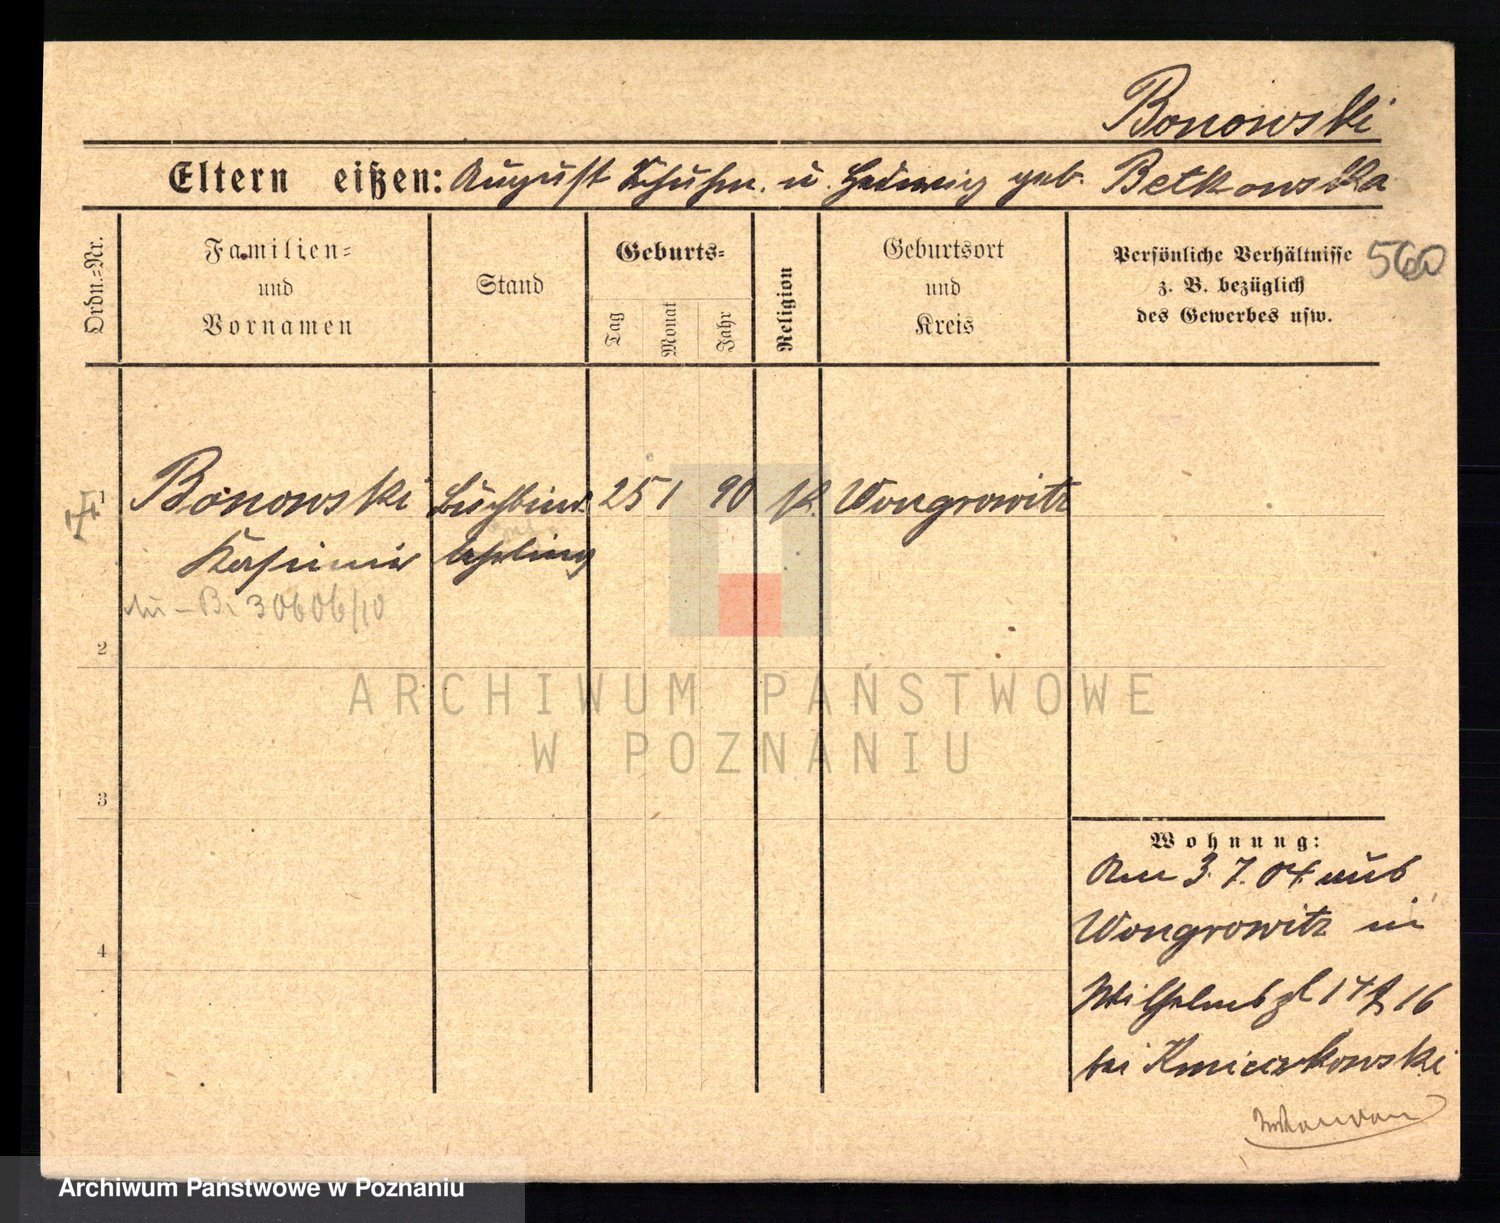 Bonowski
Eltern eißen: August Schuhm. u. Hedwig geb. Betkowska
Ordn.=Nr.
Familien=
und
Vornamen
Stand
Geburts=
Tag
Monat
Jahr
Religion
Geburtsort
und
Kreis
Persönliche Verhältnisse
z. B. bezüglich
des Gewerbes usw.
560
1
Bonowski Buchbind. 25 1 90 k. Wongrowitz
Kasimir lehrling
30606/10
2
3
4
Wohnung:
Am 3.7.04 aus
Wongrowitz in
Wilhelmspl 14 16
bei Kmieczkowski
ARCHIWUM PAŃSTWOWE
W POZNANIU
Archiwum Państwowe w Poznaniu